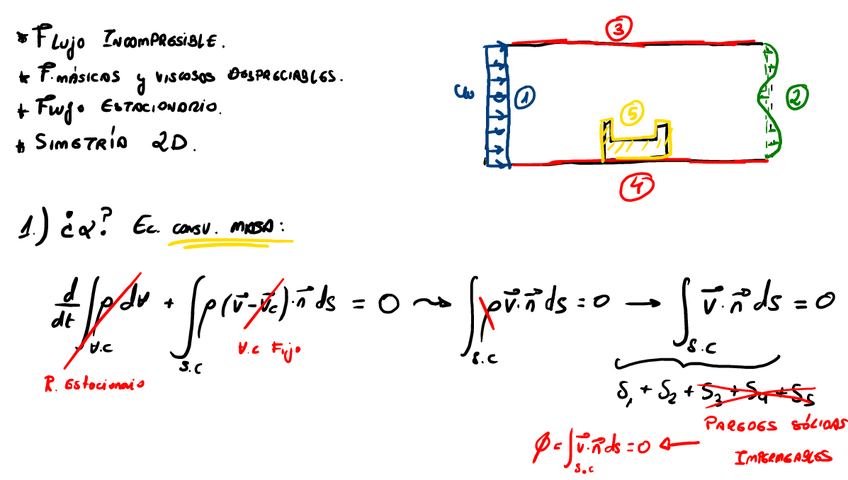 * Flujo Incompresible.
* F. másicas y viscosas despreciables.
* Flujo Estacionario.
* Simetría 2D.
③
①
②
⑤
④
1.) ¿α? Ec. consv. masa:
d/dt ∫ ρ dV + ∫ ρ (v⃗ - v⃗c) · n⃗ ds = 0 ⇝ ∫ ρ v⃗ · n⃗ ds = 0 → ∫ v⃗ · n⃗ ds = 0
V.C S.C S.C S.C
R. Estacionario
V.C Fijo
S1 + S2 + S3 + S4 + S5
Paredes sólidas
impermeables
ϕ = ∫ v⃗ · n⃗ ds = 0 ←
S.C